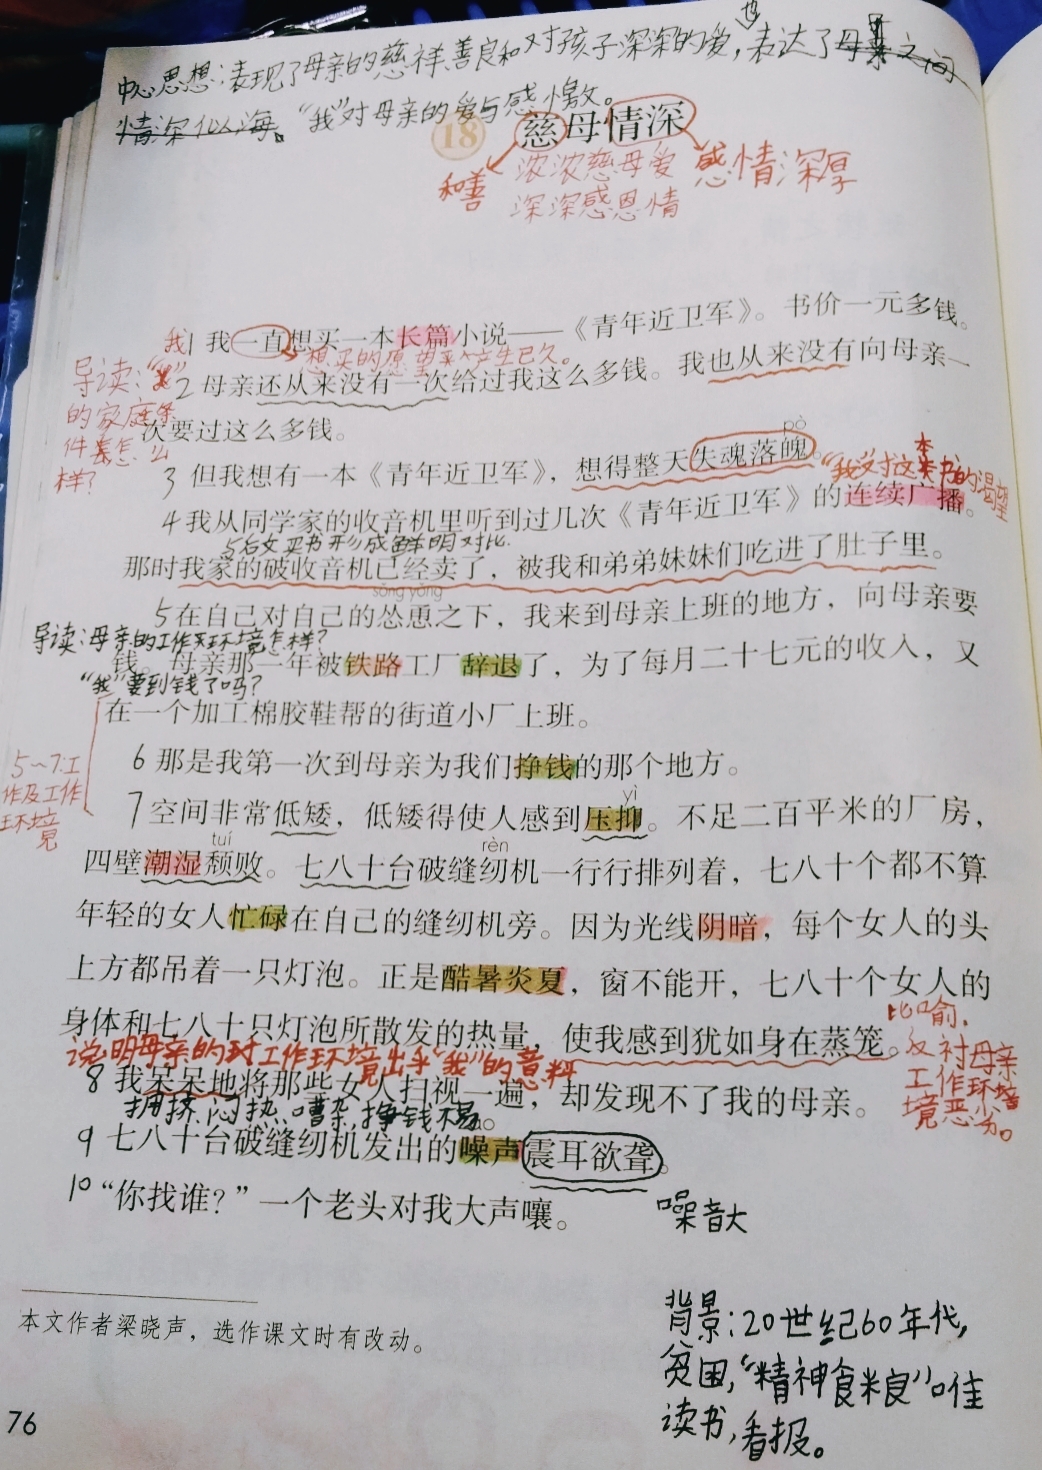 中心思想：表现了母亲的慈祥善良和对孩子深深的爱，也表达了母亲之间
情深似海。“我”对母亲的爱与感激。
18 慈母情深
和善 浓浓慈母爱 感情深厚
深深感恩情
1 我一直想买一本长篇小说——《青年近卫军》。书价一元多钱。
想买的愿望
产生已久。
导读：“我”
的家庭条
件怎么
样？
2 母亲还从来没有一次给过我这么多钱。我也从来没有向母亲一
次要过这么多钱。
pò
3 但我想有一本《青年近卫军》，想得整天失魂落魄。
“我”对这本书的渴望
4 我从同学家的收音机里听到过几次《青年近卫军》的连续广播。
与后文买书形成鲜明对比.
那时我家的破收音机已经卖了，被我和弟弟妹妹们吃进了肚子里。
sǒng yǒng
5 在自己对自己的怂恿之下，我来到母亲上班的地方，向母亲要
导读：母亲的工作环境怎样？
钱。母亲那一年被铁路工厂辞退了，为了每月二十七元的收入，又
“我”要到钱了吗？
在一个加工棉胶鞋帮的街道小厂上班。
5~7：工
作及工作
环境
6 那是我第一次到母亲为我们挣钱的那个地方。
yì
7 空间非常低矮，低矮得使人感到压抑。不足二百平米的厂房，
tuí rèn
四壁潮湿颓败。七八十台破缝纫机一行行排列着，七八十个都不算
年轻的女人忙碌在自己的缝纫机旁。因为光线阴暗，每个女人的头
上方都吊着一只灯泡。正是酷暑炎夏，窗不能开，七八十个女人的
身体和七八十只灯泡所散发的热量，使我感到犹如身在蒸笼。
比喻.
反衬母亲
工作环境
境恶劣。
说明母亲的工作环境出乎“我”的意料
8 我呆呆地将那些女人扫视一遍，却发现不了我的母亲。
拥挤、闷热、嘈杂、挣钱不易。
9 七八十台破缝纫机发出的噪声震耳欲聋。
10 “你找谁？”一个老头对我大声嚷。
噪音大
本文作者梁晓声，选作课文时有改动。
背景：20世纪60年代，
贫困，“精神食粮”唯
读书，看报。
76